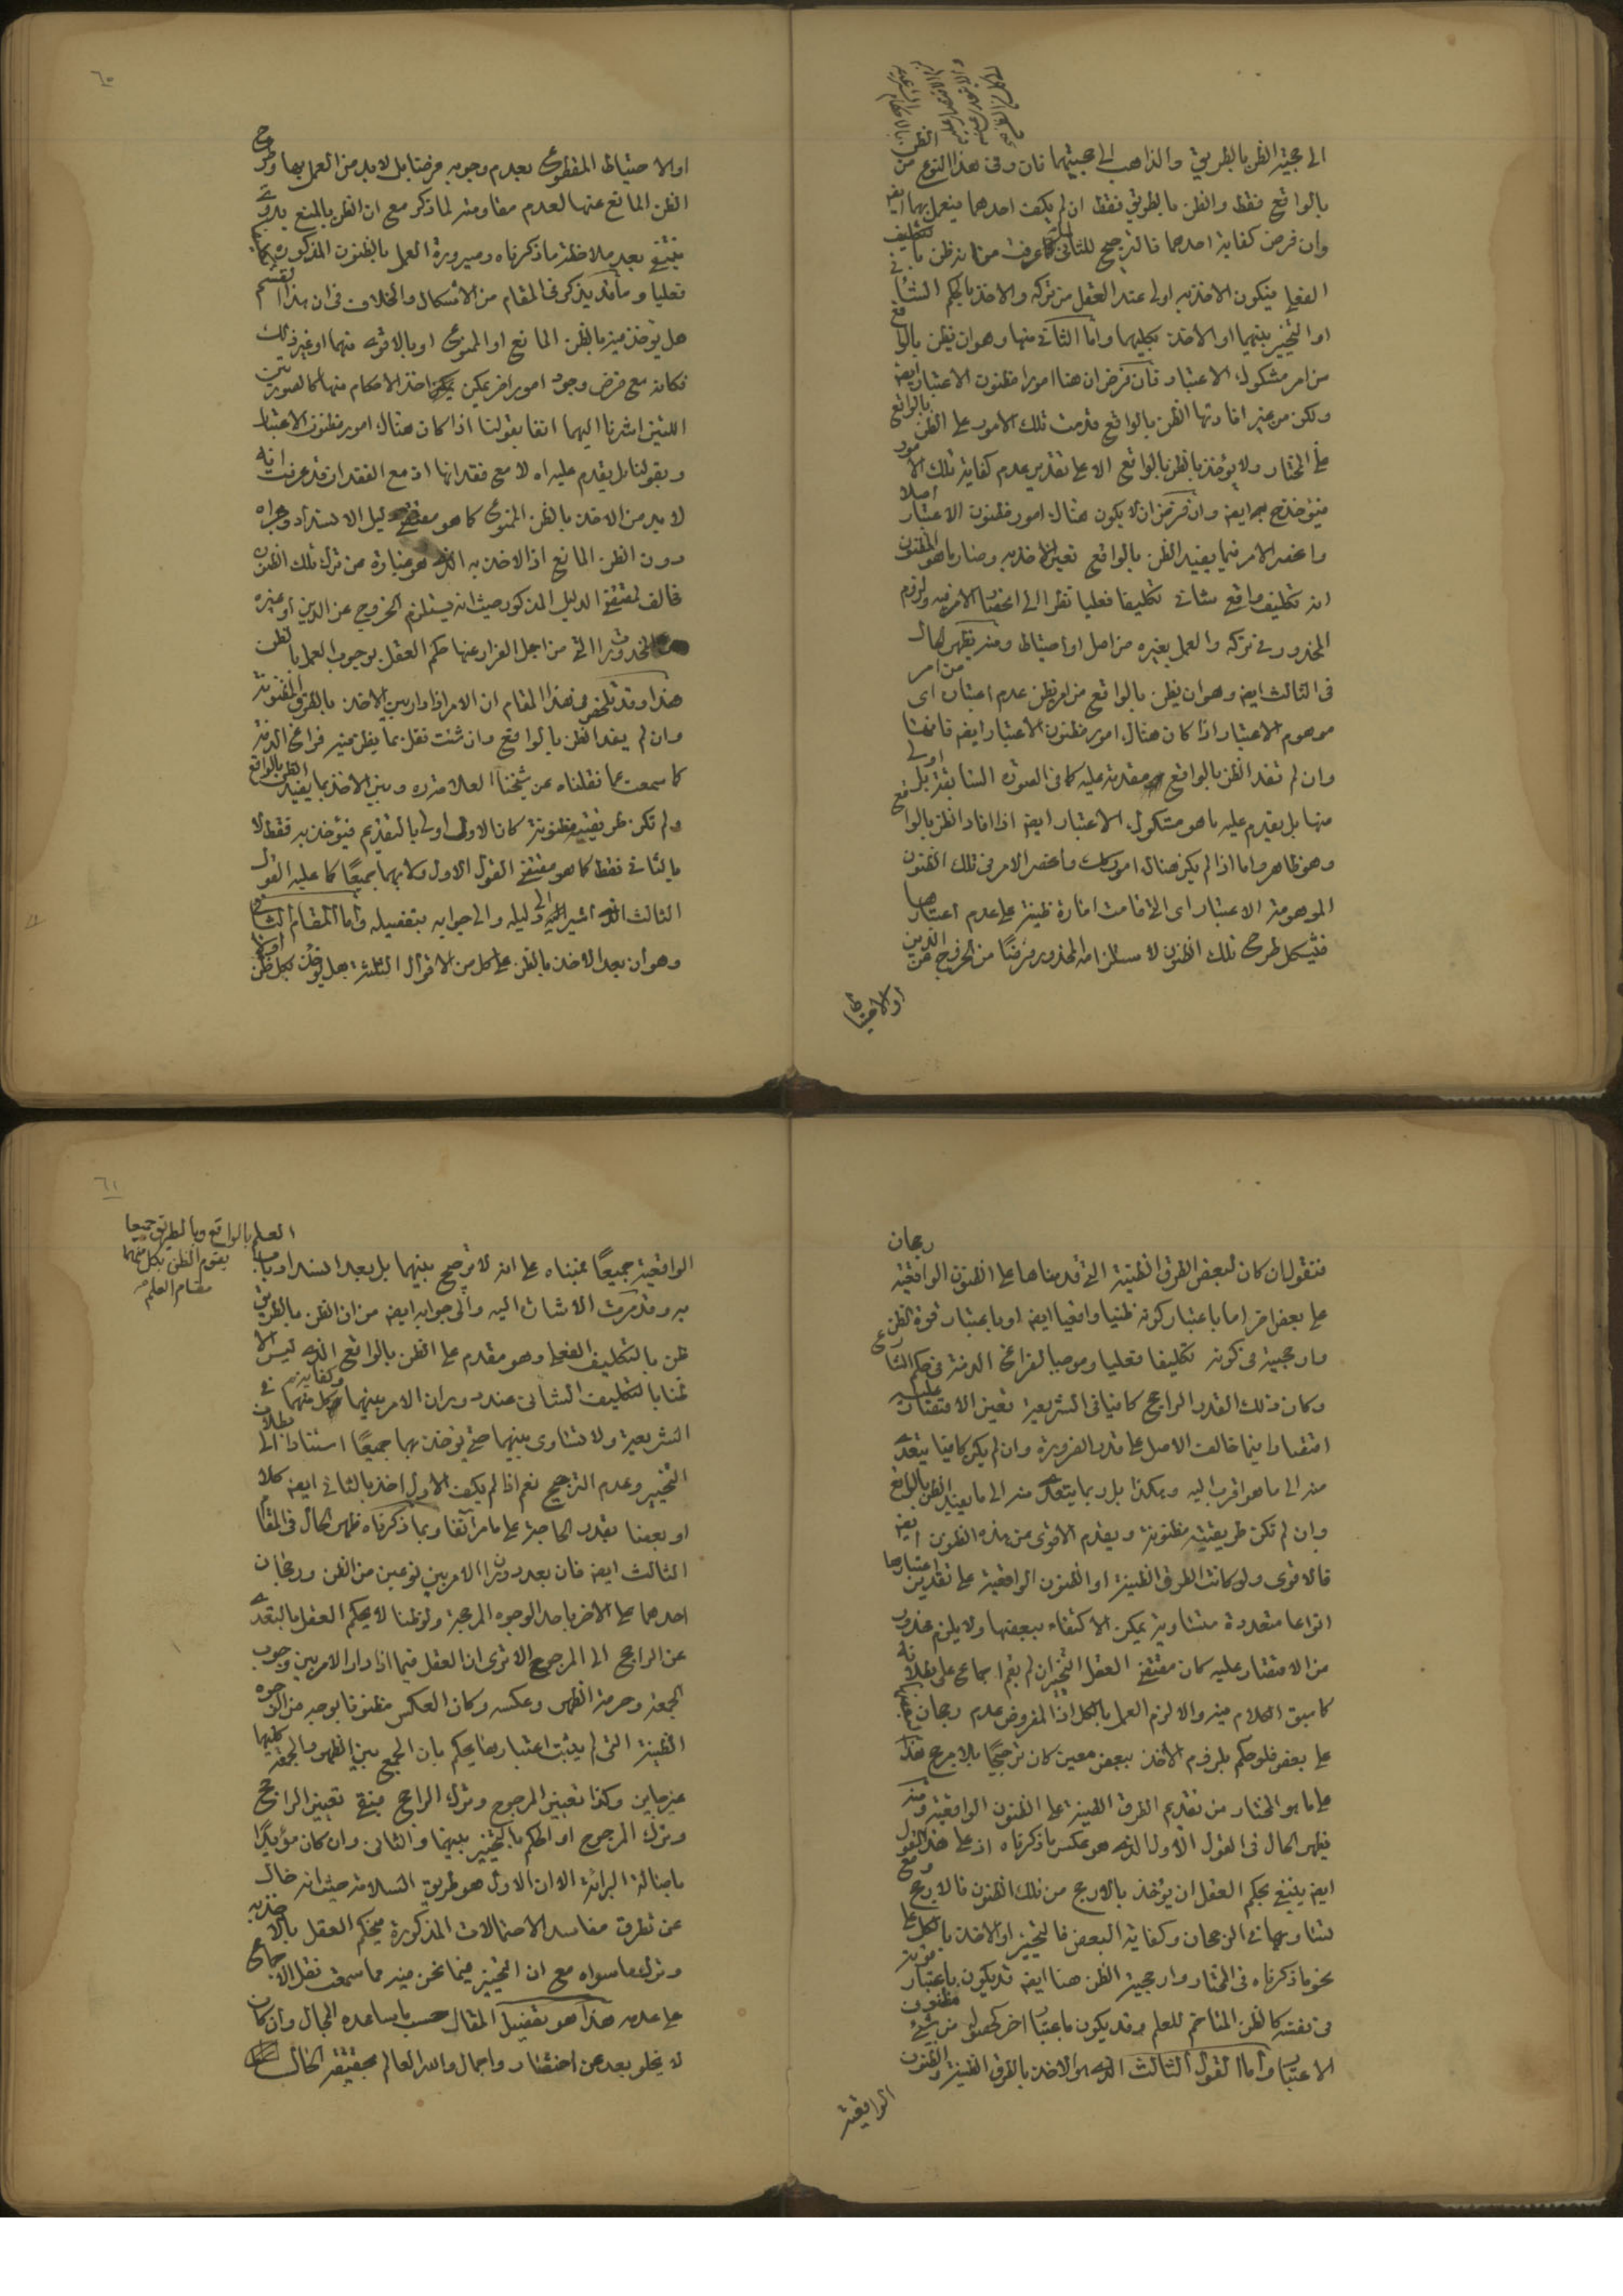 الى حجية الظن بالطريق والذاهب الى حجيتهما فان وفى هذا النوع من الظن
بالواقع فقط والظن بالطريق فقط ان لم يكف احدهما فيعمل بهما ايضا
وان فرض كفاية احدهما فالترجيح للثانى كما عرفت من انه ظن بالتكليف
الفعلى فيكون الاخذ به اولى عند العقل من تركه والاخذ بالحكم الشأنى
او التخيير بينهما او الاخذ بكليهما واما الثانى منها وهو ان يظن بالواقع
من امر مشكوك الاعتبار فان فرض ان هنا امورا مظنون الاعتبار ايضا
ولكن من غير افادتها الظن بالواقع قدمت تلك الامور على الظن بالواقع
على المختار ولا يؤخذ بالظن بالواقع الا على تقدير عدم كفاية تلك الامور
فيؤخذ ح بها ايضا وان فرض ان لا يكون هناك امور مظنون الاعتبار اصلا
وانحصر الامر فيما يفيد الظن بالواقع تعين الاخذ به وصار ما هو المظنون
انه تكليف واقع شانى تكليفا فعليا نظرا الى انحصار الامر فيه ولزوم
المحذور فى تركه والعمل بغيره من اصل او احتياط ومنه يظهر الحال
فى الثالث ايضا وهو ان يظن بالواقع من امر يظن عدم اعتباره اى
موهوم الاعتبار اذا كان هناك امور مظنون الاعتبار ايضا فانها
وان لم تفد الظن بالواقع مقدمة عليه كما فى الصورة السابقة بل اولى
منها بل يقدم عليه ما هو مشكوك الاعتبار ايضا اذا افاد الظن بالواقع
وهو ظاهر واما اذا لم يكن هناك امور كك وانحصر الامر فى تلك الظنون
الموهومة الاعتبار اى التى قامت امارة ظنية على عدم اعتبارها
فيشكل طرح تلك الظنون لاستلزامه المحذور فرضا من الخروج عن الدين
او الاحتياط
٦٠
او الاحتياط المقطوع بعدم وجوبه فرضا بل لا بد من العمل بها وطرح
الظن المانع عنها لعدم مقاومته لما ذكر مع ان الظن بالمنع
ينتفى بعد ملاحظة ما ذكرناه وصيرورة العمل بالظنون المذكورة
فعليا وما قد يذكر فى المقام من الاشكال والخلاف فى ان هذا القسم
هل يؤخذ فيه بالظن المانع او الممنوع او بالاقوى منهما او غير ذلك
فكانه مع فرض وجود امور اخر يمكن اخذ الاحكام منها كالصورتين
اللتين اشرنا اليهما انفا بقولنا اذا كان هناك امور مظنون الاعتبار
وبقولنا بل يقدم عليه اه لا مع فقدانها اذ مع الفقدان قد عرفت انه
لا بد من الاخذ بالظن الممنوع كما هو مقتضى دليل الانسداد
دون الظن المانع اذ الاخذ به الذى هو عبارة عن ترك تلك الظنون
مخالف لمقتضى الدليل المذكور حيث انه يستلزم الخروج عن الدين او غيره
من المحذورات التى من اجل الفرار عنها حكم العقل بوجوب العمل بالظن
هذا وقد تلخص فى هذا المقام ان الامر اذا دار بين الاخذ بالطرق المظنونة
وان لم يفد الظن بالواقع وان شئت نقل بما يظن منه فراغ الذمة
كما سمعت مما نقلناه عن شيخنا العلامة ره وبين الاخذ بما يفيد الظن بالواقع
ولم تكن طريقيته مظنونة كان الاول اولى بالتقديم فيؤخذ به فقط لا
بالثانى فقط كما هو مقتضى القول الاول ولا بهما جميعا كما عليه القول
الثالث الذى اشير الى دليله والى جوابه بتفصيله واما المقام الثانى
وهو ان بعد الاخذ بالظن على كل من الاقوال الثلثة هل يؤخذ بكل ظن
فنقول ان كان لبعض الطرق الظنية التى قدمناها على الظنون الواقعية رجحان
على بعض اخر اما باعتبار كونه ظنيا واقعيا ايضا او باعتبار قوة الظن
وارجحيته فى كونه تكليفا فعليا وموجبا لفراغ الذمة فى حكم الشارع
وكان ذلك القدر الراجح كافيا فى الشريعة تعين الاقتصار عليه
اقتصارا فيما خالف الاصل على قدر الضرورة وان لم يكن كافيا يتعدى
منه الى ما هو اقرب اليه وهكذا بل ربما يتعدى منه الى ما يفيد الظن بالواقع
وان لم تكن طريقيته مظنونة ويقدم الاقوى من هذه الظنون ايضا
فالاقوى ولو كانت الطرق الظنية او الظنون الواقعية على تقدير اعتبارها
انواعا متعددة متساوية يمكن الاكتفاء ببعضها ولا يلزم محذور
من الاقتصار عليه كان مقتضى العقل التخيير ان لم يقم اجماع على بطلانه
كما سبق الكلام فيه والا لزم العمل بالكل اذ المفروض عدم رجحان بعضها
على بعض فلو حكم بلزوم الاخذ ببعض معين كان ترجيحا بلا مرجح هذا
على ما هو المختار من تقديم الطرق الظنية على الظنون الواقعية ومنه
يظهر الحال فى القول الاول الذى هو عكس ما ذكرناه اذ على هذا القول
ايضا ينبغى بحكم العقل ان يؤخذ بالارجح من تلك الظنون فالارجح ومع
تساويهما فى الرجحان وكفاية البعض فالتخيير او الاخذ بالكل على
نحو ما ذكرناه فى المختار وارجحية الظن هنا ايضا قد يكون باعتبار قوته
فى نفسه كالظن المتاخم للعلم وقد يكون باعتبار اخر ككونه مظنون
الاعتبار واما القول الثالث الذى هو الاخذ بالطرق الظنية والظنون
الواقعية
٦١
العلم بالواقع وبالطريق جميعا
يقوم الظن بكل منهما
مقام العلم
الواقعية جميعا بناه على انه لا ترجيح بينهما بل بعد انسداد باب
وقد مرت الاشارة اليه والى جوابه ايضا من ان الظن بالطريق
ظن بالتكليف الفعلى وهو مقدم على الظن بالواقع الذى ليس الا
ظنا بالتكليف الشانى عند دوران الامر بينهما وكفاية كل منهما فى
الشريعة ولا تساوى بينهما حتى يؤخذ بهما جميعا استنادا الى بطلان
التخيير وعدم الترجيح نعم اذا لم يكف الاول اخذ بالثانى ايضا كلا
او بعضا بقدر الحاجة على ما مر آنفا وبما ذكرناه ظهر الحال فى المقام
الثالث ايضا فان بعد دوران الامر بين نوعين من الظن ورجحان
احدهما على الاخر باحد الوجوه المرجحة ولو ظنا لا يحكم العقل بالتعدى
عن الراجح الى المرجوح الا ترى ان العقل فيما اذا دار الامر بين وجوب
الجمعة وحرمة الظهر وعكسه وكان العكس مظنونا بوجه من الوجوه
الظنية التى لم يثبت اعتبارها يحكم بان الجمع بين الظهر والجمعة كليهما
غير جايز وكذا تعيين المرجوح وترك الراجح فبقى تعيين الراجح
وترك المرجوح او الحكم بالتخيير بينهما والثانى وان كان مؤيدا
باصالة البرائة الا ان الاول هو طريق السلامة حيث انه خال
عن تطرق مفاسد الاحتمالات المذكورة فيحكم العقل بالاخذ به
وترك ما سواه مع ان التخيير فيما نحن فيه مما سمعت نقل الاجماع
على عدمه هذا هو تفصيل المقال حسب ما يساعده المجال وان كان
لا يخلو بعد عن اختصار واجمال والله العالم بحقيقة الحال